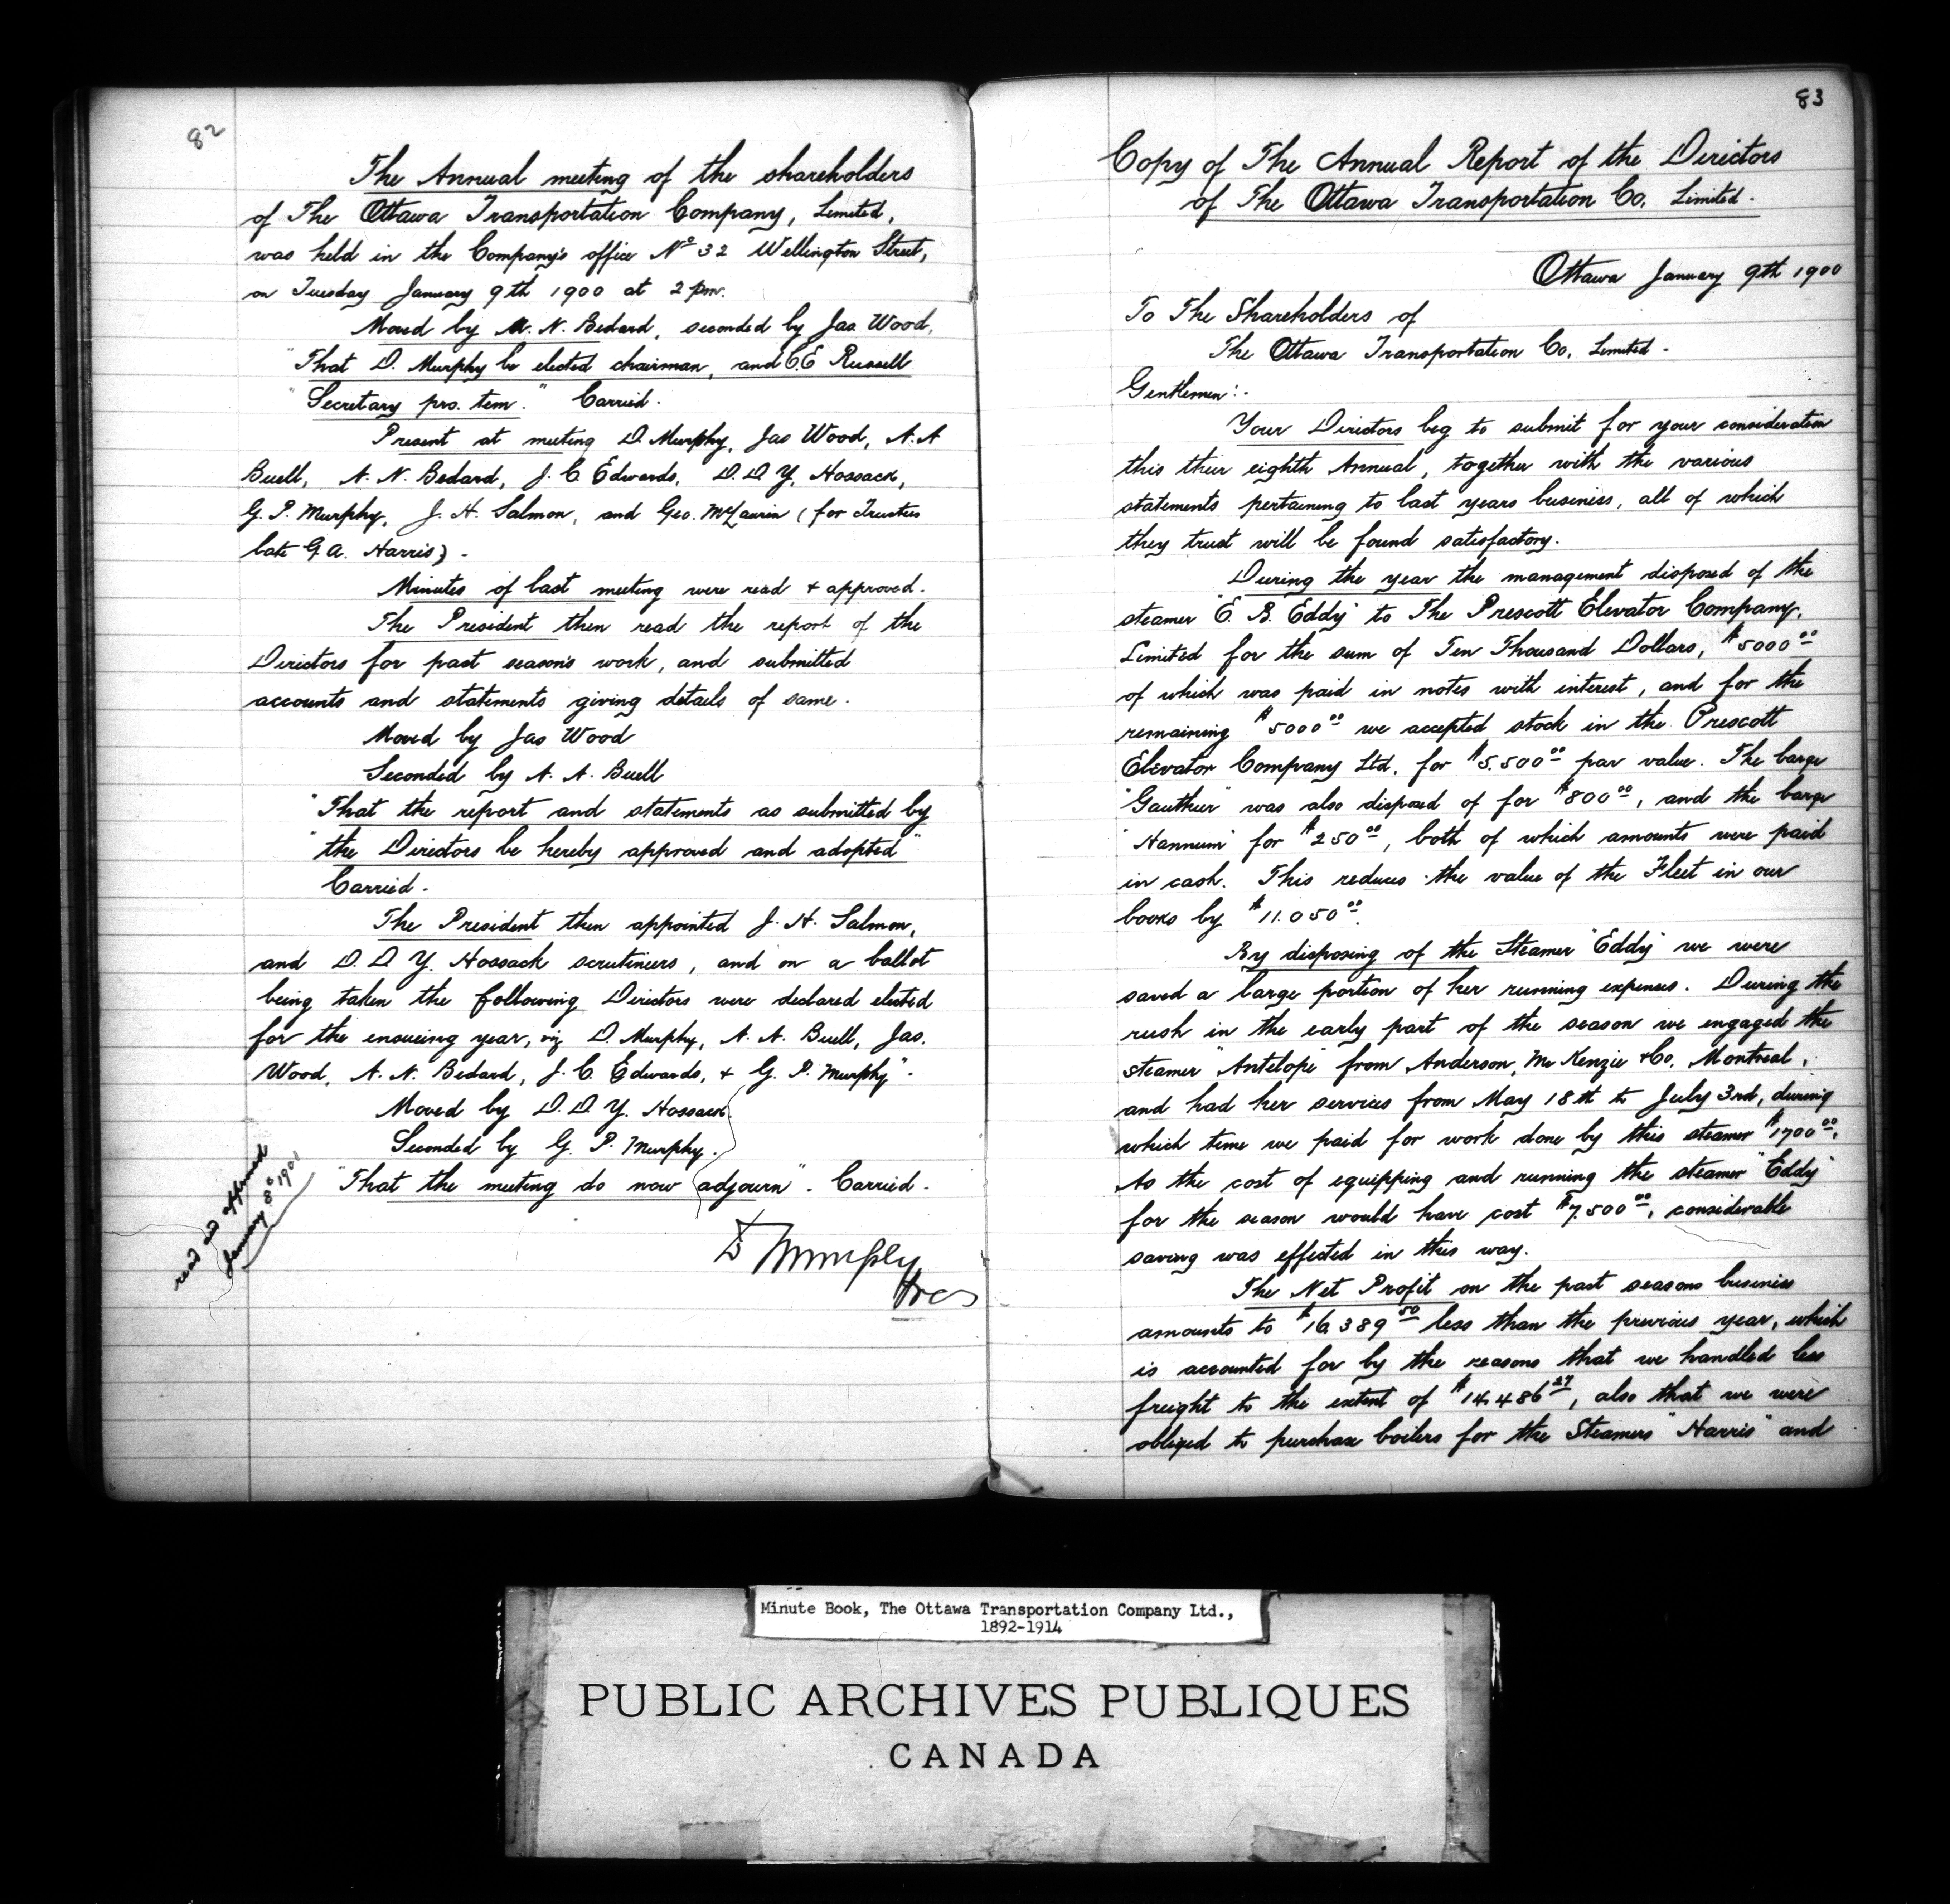 82
The Annual meeting of the shareholders
of The Ottawa Transportation Company, Limited,
was held in the Company's office No 32 Wellington Street,
on Tuesday January 9th 1900 at 2 pm.
Moved by A. N. Bedard, seconded by Jas Wood,
"That D. Murphy be elected chairman, and C.E Russell
"Secretary pro. tem." Carried.
Present at meeting D. Murphy, Jas Wood, A. A
Buell, A. N. Bedard, J. C. Edwards, D. D Y. Hossack,
G. P. Murphy, J. H. Salmon, and Geo. McLaurin (for Trustees
late G. A. Harris) -
Minutes of last meeting were read + approved.
The President then read the report of the
Directors for past season's work, and submitted
accounts and statements giving details of same.
Moved by Jas Wood
Seconded by A. A. Buell
"That the report and statements as submitted by
"the Directors be hereby approved and adopted"
Carried.
The President then appointed J. H. Salmon,
and D. D Y. Hossack scrutineers, and on a ballot
being taken the following Directors were declared elected
for the ensueing year, viz D. Murphy, A. A. Buell, Jas.
Wood, A. N. Bedard, J. C. Edwards, + G. P. Murphy".
Moved by D. D Y. Hossack
Seconded by G. P. Murphy.
"That the meeting do now adjourn". Carried.
D Murphy
Pres
read and approved
January 8th 1901
83
Copy of The Annual Report of the Directors
of The Ottawa Transportation Co. Limited.
Ottawa January 9th 1900
To The Shareholders of
The Ottawa Transportation Co. Limited.
Gentlemen:-
Your Directors beg to submit for your consideration
this their eighth Annual, together with the various
statements pertaining to last years business, all of which
they trust will be found satisfactory.
During the year the management disposed of the
steamer "E. B. Eddy" to The Prescott Elevator Company,
Limited for the sum of Ten Thousand Dollars, $5000.00
of which was paid in notes with interest, and for the
remaining $5000.00 we accepted stock in the Prescott
Elevator Company Ltd. for $5.500.00 par value. The barge
"Gauthier" was also disposed of for $800.00, and the barge
"Hannum" for $250.00, both of which amounts were paid
in cash. This reduces the value of the Fleet in our
books by $11.050.00.
By disposing of the Steamer "Eddy" we were
saved a large portion of her running expenses. During the
rush in the early part of the season we engaged the
steamer "Antelope" from Anderson, McKenzie + Co, Montreal,
and had her services from May 18th to July 3rd, during
which time we paid for work done by this steamer $1700.00.
As the cost of equipping and running the steamer "Eddy"
for the season would have cost $7.500.00, considerable
saving was effected in this way.
The Net Profit on the past seasons business
amounts to $16,389.50 less than the previous year, which
is accounted for by the reasons that we handled less
freight to the extent of $14,486.27, also that we were
obliged to purchase boilers for the Steamers "Harris" and
Minute Book, The Ottawa Transportation Company Ltd.,
1892-1914
PUBLIC ARCHIVES PUBLIQUES
CANADA